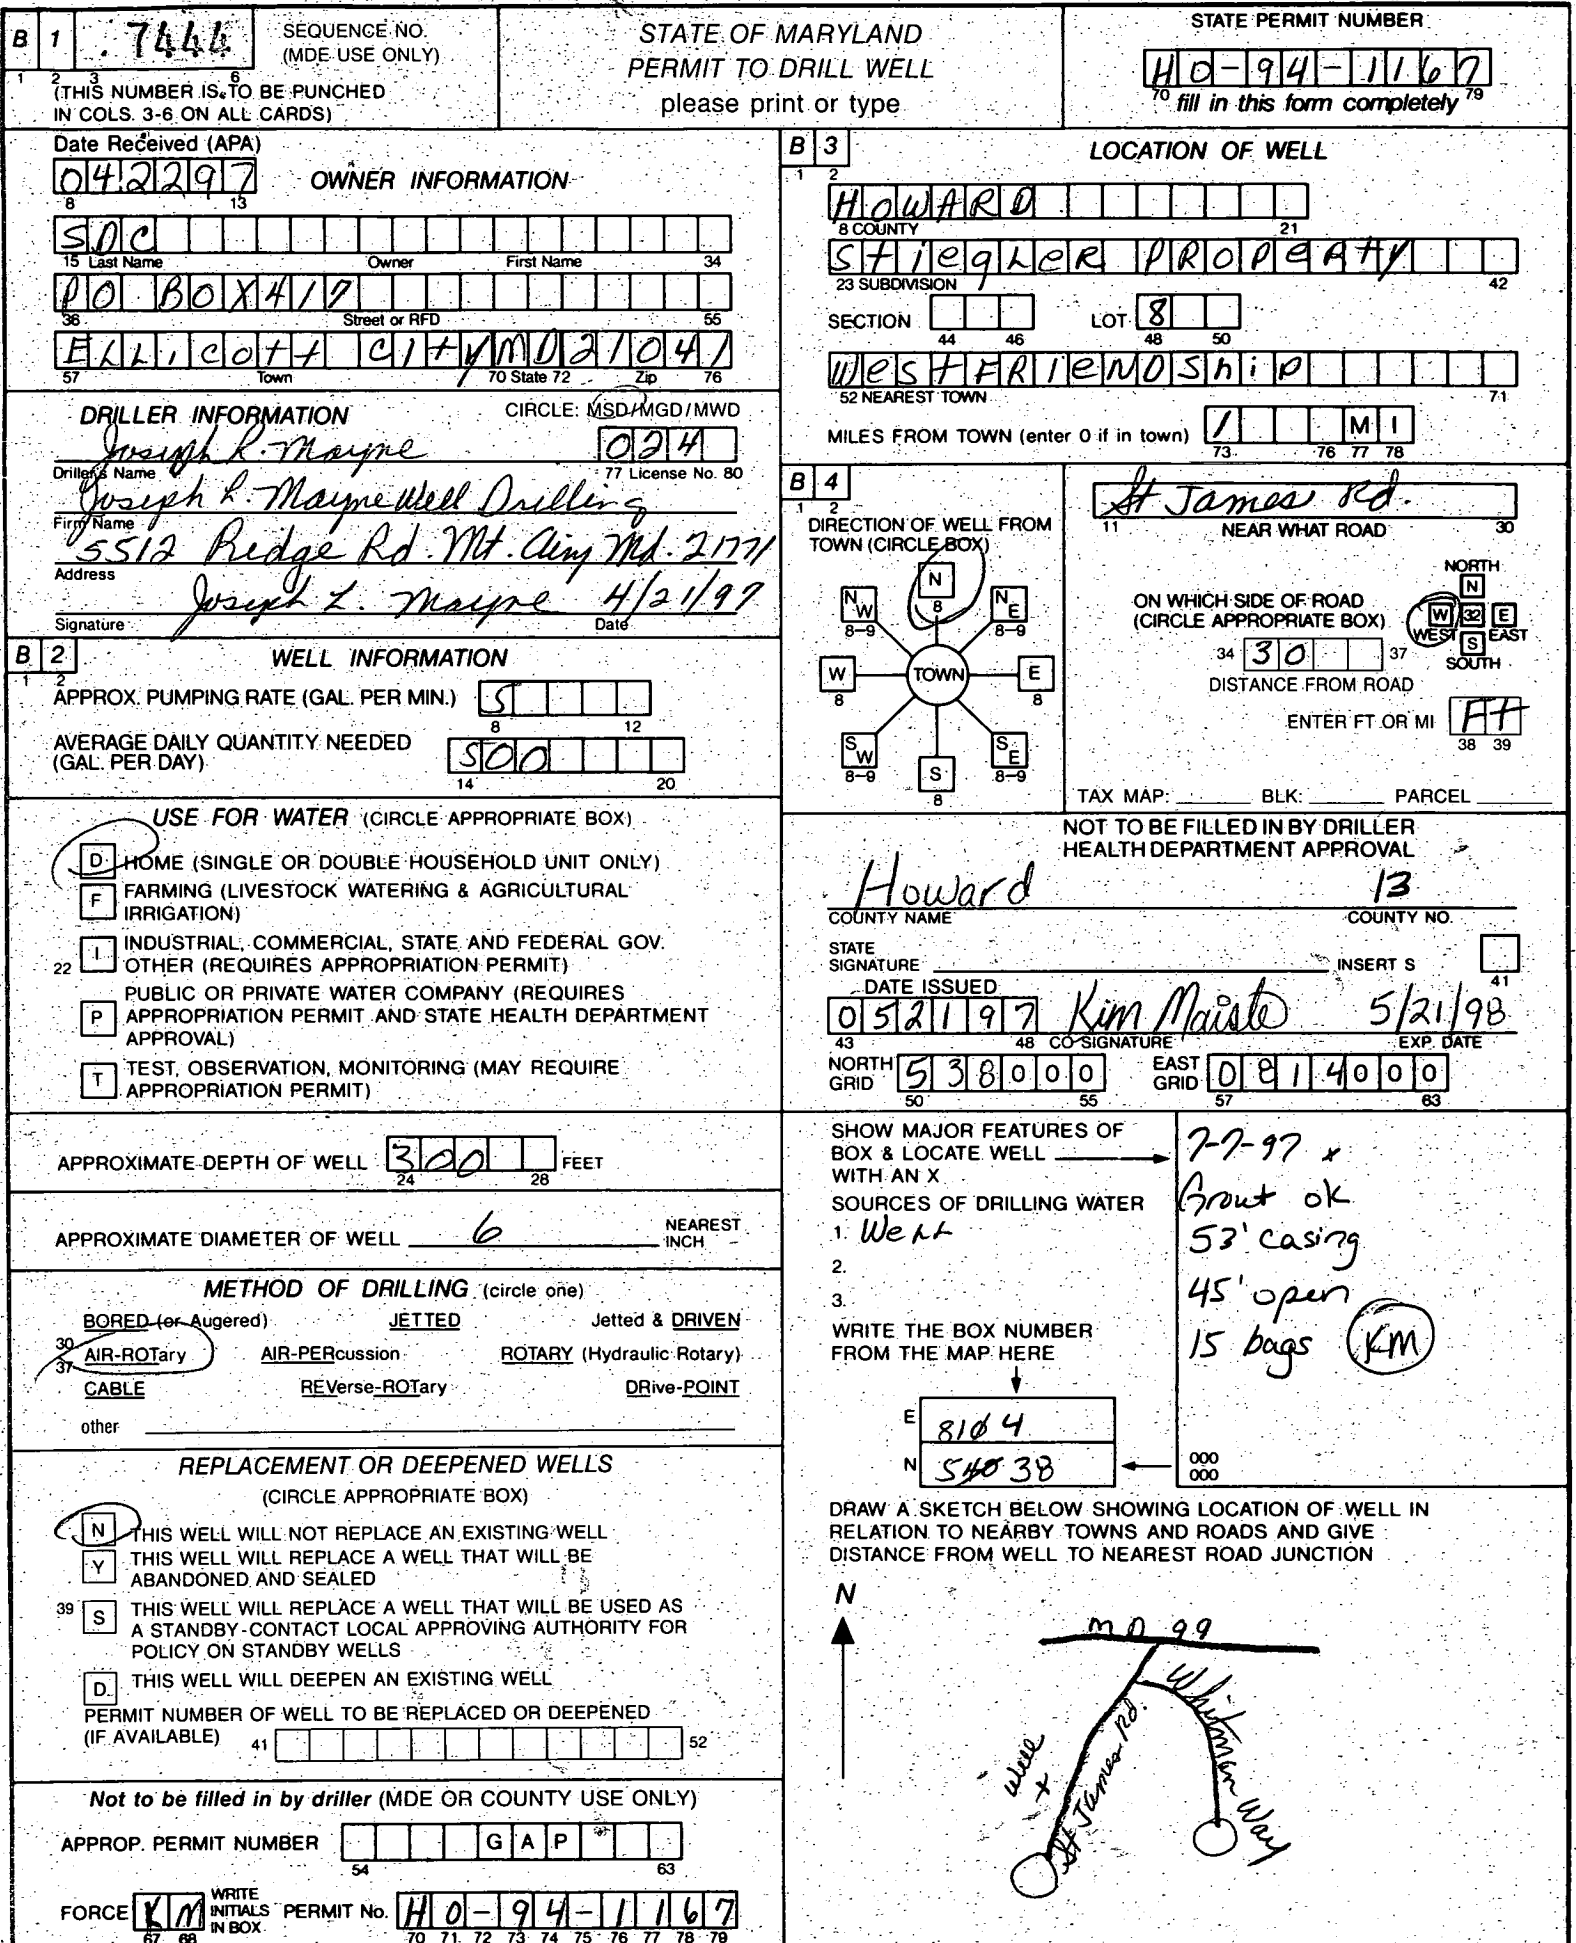 B 1 7444 SEQUENCE NO. (MDE USE ONLY)
1 2 3 6
(THIS NUMBER IS TO BE PUNCHED
IN COLS. 3-6 ON ALL CARDS)
STATE OF MARYLAND
PERMIT TO DRILL WELL
please print or type
STATE PERMIT NUMBER
HO-94-1167
70 fill in this form completely 79
Date Received (APA)
042297 OWNER INFORMATION
8 13
SDC
15 Last Name Owner First Name 34
PO BOX417
36 Street or RFD 55
ELLicott CityMD21041
57 Town 70 State 72 Zip 76
DRILLER INFORMATION CIRCLE: MSD/MGD/MWD
Joseph L. Mayne 024
Driller's Name 77 License No. 80
Joseph L. Mayne Well Drilling
Firm Name
5512 Ridge Rd. Mt. Airy Md. 21771
Address
Joseph L. Mayne 4/21/97
Signature Date
B 2 WELL INFORMATION
1 2
APPROX. PUMPING RATE (GAL. PER MIN.) 5
8 12
AVERAGE DAILY QUANTITY NEEDED
(GAL. PER DAY) 500
14 20
USE FOR WATER (CIRCLE APPROPRIATE BOX)
D HOME (SINGLE OR DOUBLE HOUSEHOLD UNIT ONLY)
F FARMING (LIVESTOCK WATERING & AGRICULTURAL
IRRIGATION)
I INDUSTRIAL, COMMERCIAL, STATE AND FEDERAL GOV.
22 OTHER (REQUIRES APPROPRIATION PERMIT)
PUBLIC OR PRIVATE WATER COMPANY (REQUIRES
P APPROPRIATION PERMIT AND STATE HEALTH DEPARTMENT
APPROVAL)
T TEST, OBSERVATION, MONITORING (MAY REQUIRE
APPROPRIATION PERMIT)
APPROXIMATE DEPTH OF WELL 300 FEET
24 28
APPROXIMATE DIAMETER OF WELL 6 NEAREST INCH
METHOD OF DRILLING (circle one)
BORED (or Augered) JETTED Jetted & DRIVEN
30 AIR-ROTary AIR-PERcussion ROTARY (Hydraulic Rotary)
37
CABLE REVerse-ROTary DRive-POINT
other
REPLACEMENT OR DEEPENED WELLS
(CIRCLE APPROPRIATE BOX)
N THIS WELL WILL NOT REPLACE AN EXISTING WELL
Y THIS WELL WILL REPLACE A WELL THAT WILL BE
ABANDONED AND SEALED
39 S THIS WELL WILL REPLACE A WELL THAT WILL BE USED AS
A STANDBY-CONTACT LOCAL APPROVING AUTHORITY FOR
POLICY ON STANDBY WELLS
D THIS WELL WILL DEEPEN AN EXISTING WELL
PERMIT NUMBER OF WELL TO BE REPLACED OR DEEPENED
(IF AVAILABLE) 41 52
Not to be filled in by driller (MDE OR COUNTY USE ONLY)
APPROP. PERMIT NUMBER GAP
54 63
FORCE KM WRITE INITIALS IN BOX PERMIT No. HO-94-1167
67 68 70 71 72 73 74 75 76 77 78 79
B 3 LOCATION OF WELL
1 2
HOWARD
8 COUNTY 21
StiegLeR PROPeRty
23 SUBDIVISION 42
SECTION LOT 8
44 46 48 50
WestFRieNDShip
52 NEAREST TOWN 71
MILES FROM TOWN (enter 0 if in town) 1 MI
73 76 77 78
B 4
1 2
DIRECTION OF WELL FROM
TOWN (CIRCLE BOX)
N
8
NW NE
8-9 8-9
W TOWN E
8 8
SW SE
8-9 8-9
S
8
St James Rd.
11 NEAR WHAT ROAD 30
ON WHICH SIDE OF ROAD
(CIRCLE APPROPRIATE BOX)
NORTH
N
W 32 E
WEST EAST
S
SOUTH
34 30 37
DISTANCE FROM ROAD
ENTER FT OR MI Ft
38 39
TAX MAP: BLK: PARCEL
NOT TO BE FILLED IN BY DRILLER
HEALTH DEPARTMENT APPROVAL
Howard 13
COUNTY NAME COUNTY NO.
STATE
SIGNATURE INSERT S
41
DATE ISSUED
052197 Kim Maiste 5/21/98
43 48 CO SIGNATURE EXP. DATE
NORTH GRID 538000 EAST GRID 0814000
50 55 57 63
SHOW MAJOR FEATURES OF
BOX & LOCATE WELL
WITH AN X
SOURCES OF DRILLING WATER
1. WeLL
2.
3.
WRITE THE BOX NUMBER
FROM THE MAP HERE
E 8104
N 54038
7-7-97 x
Grout ok
53' casing
45' open
15 bags KM
000
000
DRAW A SKETCH BELOW SHOWING LOCATION OF WELL IN
RELATION TO NEARBY TOWNS AND ROADS AND GIVE
DISTANCE FROM WELL TO NEAREST ROAD JUNCTION
N
MD 99
Whitman Way
St James Rd.
Well
+